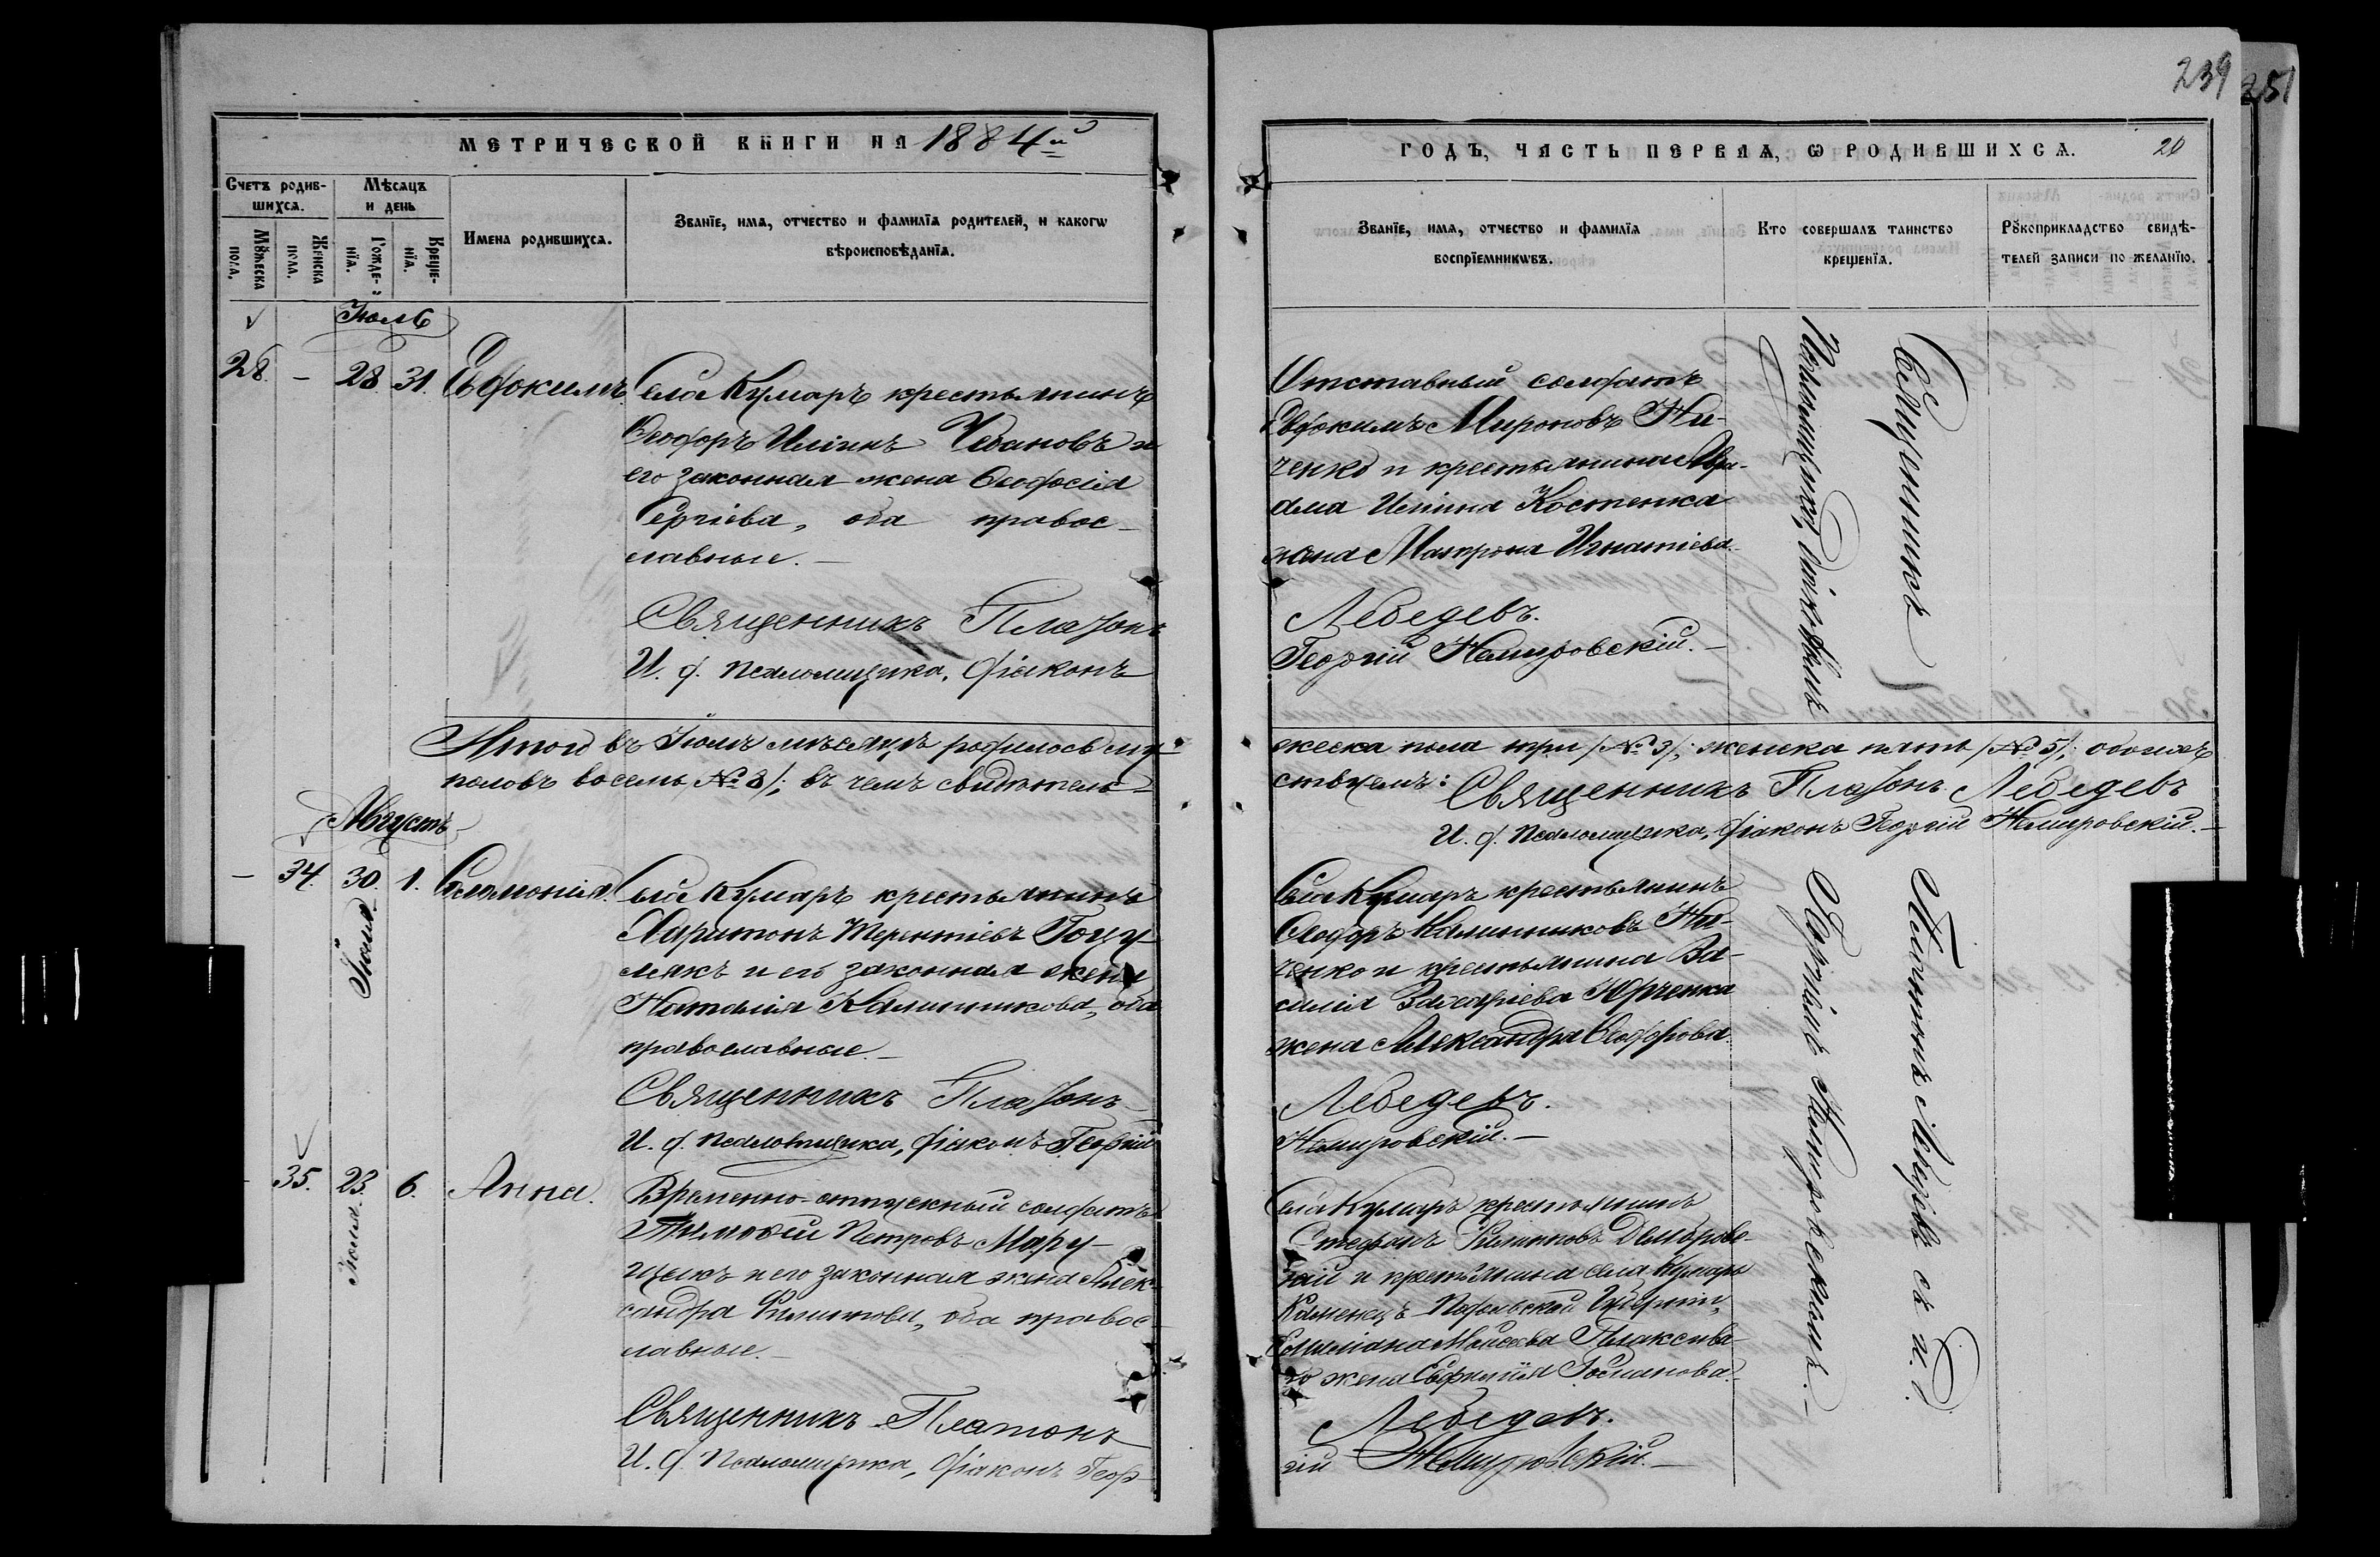 239 251
МЕТРИЧЕСКОЙ КНИГИ НА 1884й
ГОДЪ, ЧАСТЬ ПЕРВАЯ, Ѡ РОДИВШИХСѦ. 20
Счетъ родив-
шихсѧ.
Мѣсѧцъ
и день
Мꙋжеска
пола.
Женска
пола.
Рожде-
нїѧ.
Креще-
нїѧ.
Имена родившихсѧ.
Званїе, имѧ, отчество и фамилїѧ родителей, и какогѡ
вѣроисповѣданїѧ.
Званїе, имѧ, отчество и фамилїѧ
воспрїемникѡвъ.
Кто совершалъ таинство
крещенїѧ.
Рꙋкоприкладство свидѣ-
телей записи по желанїю.
Іюль
28. – 28. 31. Евфокимъ.
Села Кумаръ крестьянинъ
Ѳеодоръ Илiинъ Чебановъ и
его законная жена Ѳеодосiя
Сергiева, оба правос-
лавные.
Священникъ Платонъ
И. д. псаломщика, дiаконъ
Отставный солдатъ
Евдокимъ Мироновъ Ни-
ченко и крестьянина Авра-
ама Илiина Костенка
жена Матрона Игнатiева.
Лебедевъ.
Георгiй Немировскiй.
Священникъ
Итого въ Iюлѣ мѣсяцѣ родилось му-
жеска пола три /№ 3/; женска пять /№ 5/; обоихъ
половъ восемь /№ 8/; въ чемъ свидѣтель-
ствуемъ: Священникъ Платонъ Лебедевъ
И. д. псаломщика, дiаконъ Георгiй Немировскiй.
Августъ
– 34. 30. Iюля. 1. Соломонiя.
Села Кумаръ крестьянинъ
Харитонъ Терентiевъ Гоцу-
лякъ и его законная жена
Наталiя Калинникова, оба
православные.
Священникъ Платонъ
И. д. псаломщика, дiаконъ Георгiй
Села Кумаръ крестьянинъ
Ѳеодоръ Калинниковъ Ни-
ченко и крестьянина Ва-
силiя Захарiева Юрченка
жена Александра Ѳеодорова.
Лебедевъ.
Немировскiй.
35. 23. Iюля. 6. Анна.
Временно-отпускный солдатъ
Тимоѳей Петровъ Мару-
щакъ и его законная жена Алек-
сандра Филиппова, оба правос-
лавные.
Священникъ Платонъ
И. д. псаломщика, дiаконъ Геор-
Села Кумаръ крестьянинъ
Стефанъ Филипповъ Домбров-
скiй и крестьянина села Кумаръ
Каменецъ-Подольской Губернiи,
Емилiана Моисеева Плаксива-
го жена Евфимiя Романова.
Лебедевъ.
гiй Немировскiй.